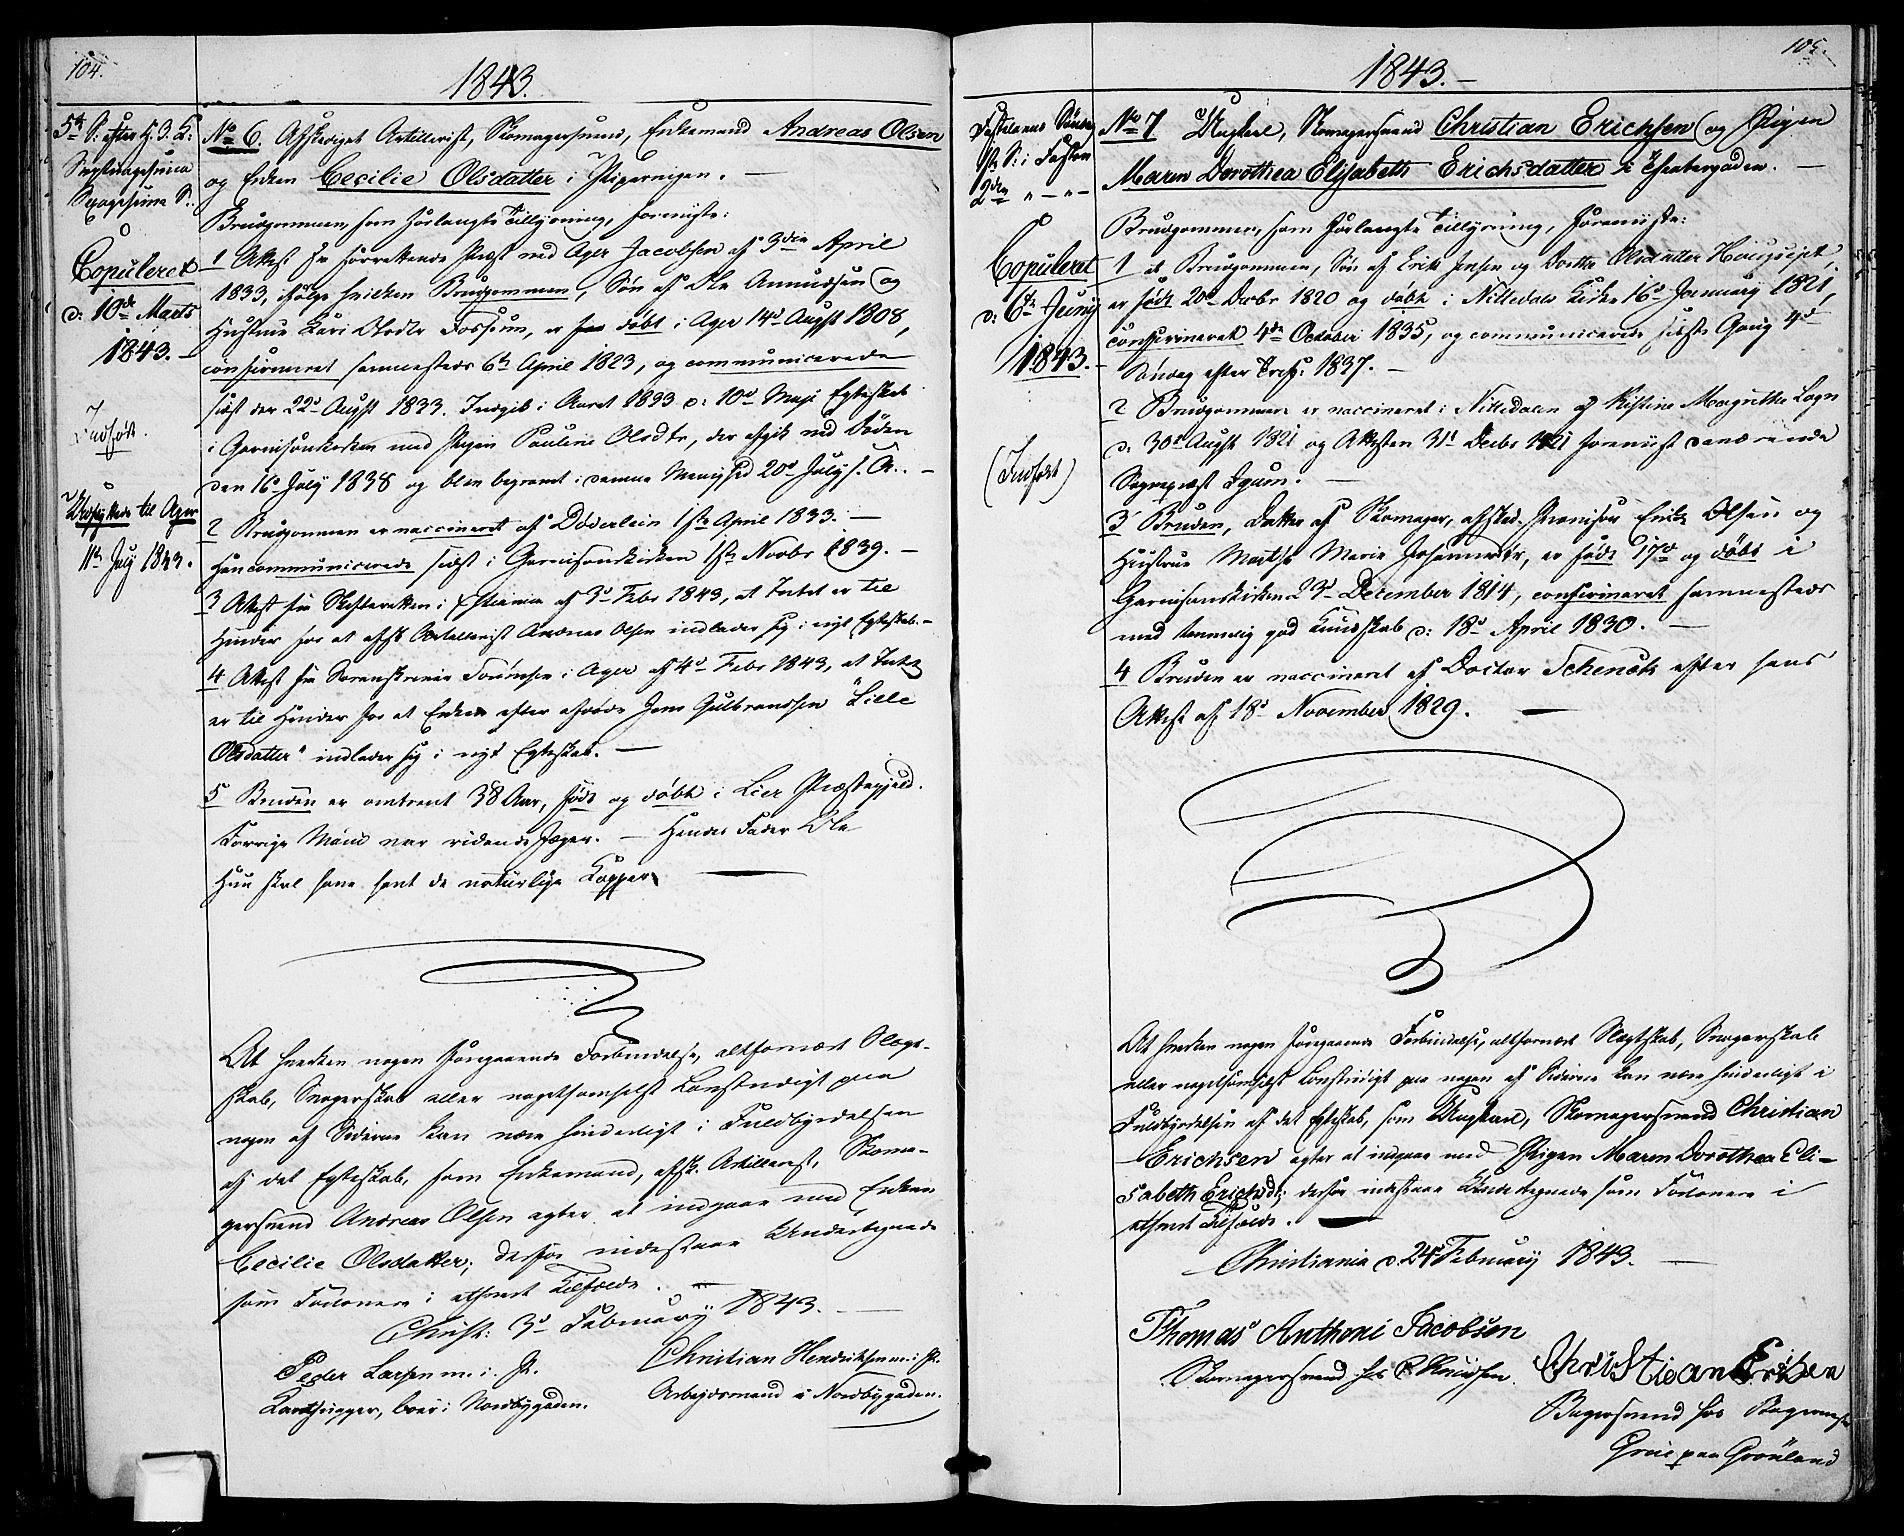 104.
1843.
5te S: efter H. 3. K:
Septuagesima
Sexagesima S:
Copuleret
d: 10de Marts
1843.
Indført.
Udskykket til Ager
11te July 1843.
No 6. Afskediget Artillerist, Skomagersvend, Enkemand Andreas Olsen
og Enken Cecilie Olsdatter i Pipervigen. —
Brudgommen, som forlangte Tillysning, foreviste:
1 Attest fra forrettende Præst ved Ager Jacobsen af 3die April
1833, ifølge hvilken Brudgommen, Søn af Ole Amundsen og
Hustrue Kari Olsdtr Fossum, er døbt i Ager 14de Augst 1808,
confirmeret sammesteds 6te April 1823, og communicerede
sidst den 22de Augst 1833. Indgik i Aaret 1833 d: 10de Maji Egteskab
i Garnisonskirken med Pigen Pauline Olsdtr, der afgik ved Døden
den 16de July 1838 og blev begravet i denne Menighed 20de July s. A. —
2 Brudgommen er vaccineret af Döderlein 1ste April 1833. —
Han communicerede sidst i Garnisonskirken 1ste Novbr 1839. —
3 Attest fra Skifteretten i Chstiania af 3de Febr 1843, at Intet er til
Hinder for at afsk. Artillerist Andreas Olsen indlader sig i nyt Egteskab. —
4 Attest fra Sorenskriver Sørensen i Ager af 4de Febr 1843, at Intet
er til Hinder for at Enken efter afdøde Jens Gulbrandsen "Lille
Olsdatter" indlader sig i nyt Egteskab. —
5 Bruden er omtrent 38 Aar, født og døbt i Lier Præstegjeld.
Forrige Mand var ridende Jæger. — Hendes Fader Ole
Hun skal have havt de naturlige Kopper. —
At hverken nogen foregaaende Forbindelse, altfornært Slægt-
skab, Svogerskab eller nogetsomhelst Lovstridigt paa
nogen af Siderne kan være hinderligt i Fuldbyrdelsen
af det Egteskab, som Enkemand, afsk. Artillerist, Skoma-
gersvend Andreas Olsen agter at indgaae med Enken
Cecilie Olsdatter; derfor indestaae Undertegnede
som Forlovere i ethvert Tilfælde. —
Christ: 3de February 1843. —
Peder Larsen m. i. P.
boer i Nordbygaden.
Christian Hendriksen m. i. P.
Arbeidsmand i Nordbygaden.
105.
1843. —
Fastelavns Søndag
1ste S: i Fasten
2den " — " — "
Copuleret
d: 6te Juny
1843. —
(Indført)
No 7 Ungkarl, Skomagersvend Christian Erichsen og Pigen
Maren Dorothea Elisabeth Erichsdatter i —
Brudgommen, som forlangte Tillysning, foreviste:
1 at Brudgommen, Søn af Erik Jensen og Dorthe Olsdatter
er født 20de Decbr 1820 og døbt i Nittedals Kirke 16de January 1821,
confirmeret 4de October 1835, og communicerede sidste Gang 4de
Søndag efter Tref: 1837. —
2 Brudgommen er vaccineret i Nittedalen af Kistine Margrethe Lagn
d: 30te Augst 1821 og Attesten 31te Decbr 1821 foreviist daværende
Sognepræst Igum. —
3 Bruden, Datter af Skomager, afsked. Erik Olsen og
Hustrue Marthe Marie Johannesdtr, er født 17de og døbt i
Garnisonskirken 27de December 1814, confirmeret sammesteds
med temmelig god Kundskab d: 18de April 1830. —
4 Bruden er vaccineret af Doctor Schenck efter hans
Attest af 18de November 1829. —
At hverken nogen foregaaende Forbindelse, altfornært Slægtskab, Svogerskab
eller nogetsomhelst Lovstridigt paa nogen af Siderne kan være hinderligt i
Fuldbyrdelsen af det Egteskab, som Ungkarl, Skomagersvend Christian
Erichsen agter at indgaae med Pigen Maren Dorothea Eli-
sabeth Erichsdtr; derfor indestaae Undertegnede som Forlovere i
ethvert Tilfælde. —
Christiania d. 24de February 1843. —
Thomas Anthoni Jacobsen
Skomagersvend hos Knudsen.
Christian Erichsen
Bagersvend hos Bagermester
Grue paa Grønland